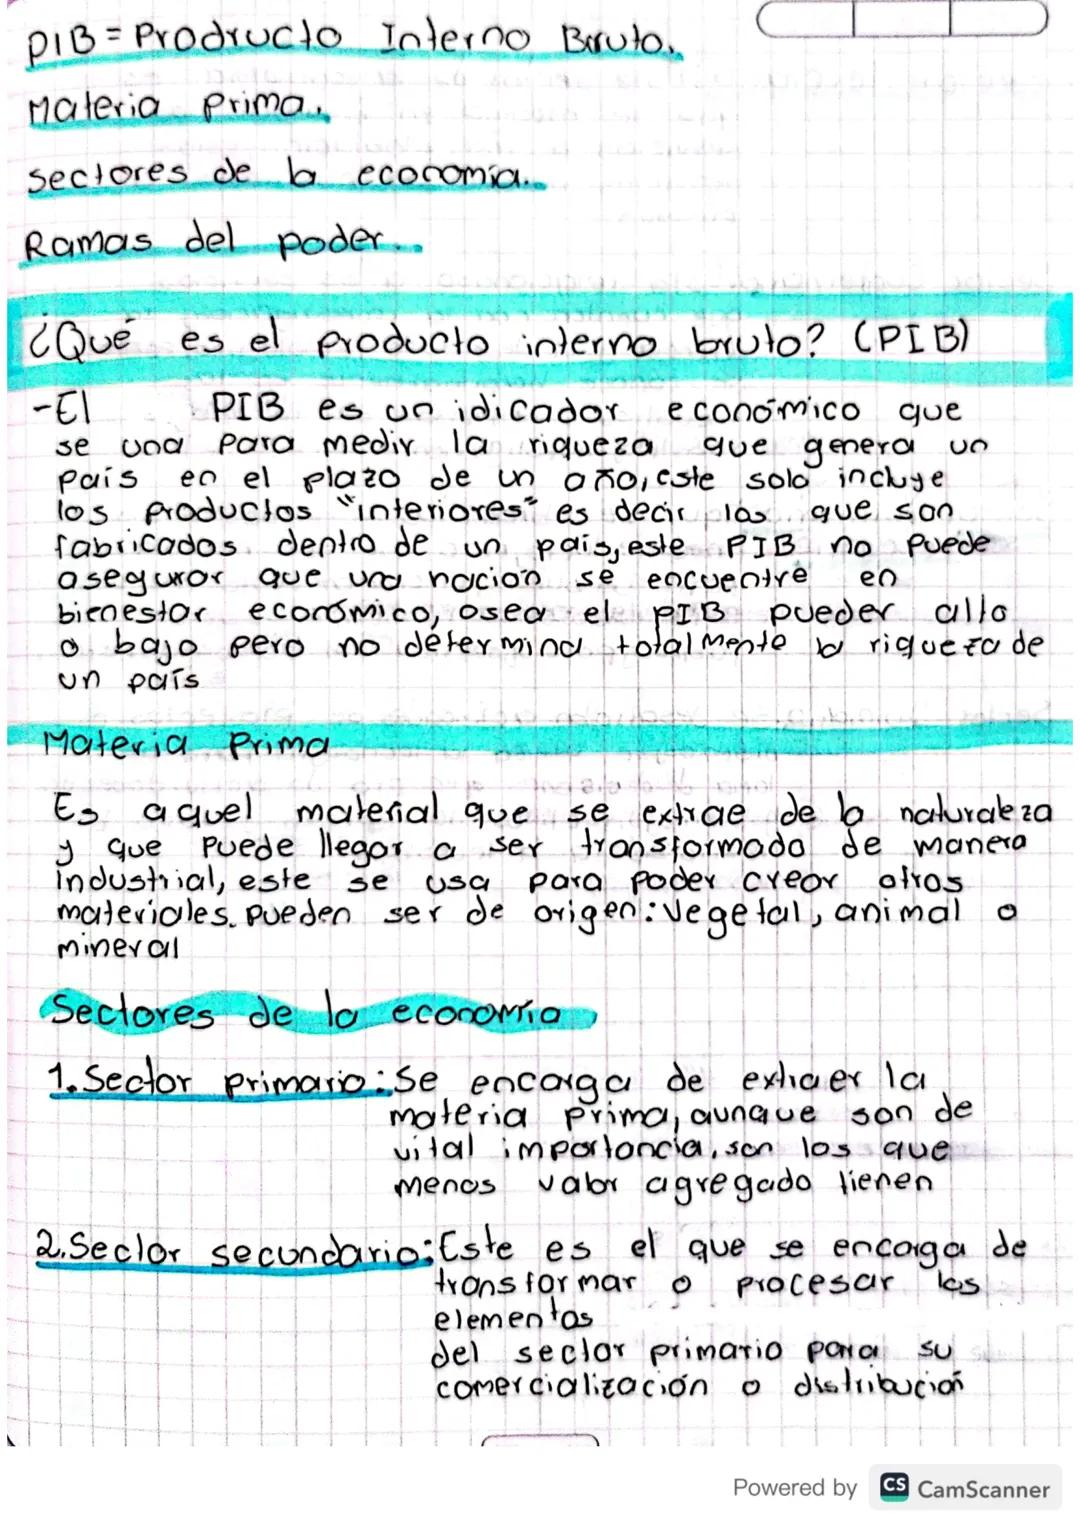 PIB = Producto Interno Bruto.
Materia Prima.
sectores de la economía.
Ramas del poder.
¿Qué es el producto interno bruto? (PIB)
-El PIB es un idicador económico que
se usa para medir la riqueza que genera un
país en el plazo de un año, este solo incluye
los productos "interiores" es decir los que son
fabricados dentro de un país, este PIB no puede
asegurar que una nación se encuentre en
bienestar económico, osea el PIB pueder alto
o bajo pero no determina totalmente la riqueza de
un país
Materia Prima
Es aquel material que se extrae de la naturaleza
y que puede llegar a ser transformado de manera
industrial, este se usa para poder crear otros
materiales. pueden ser de origen: vegetal, animal o
mineral
Sectores de la economía
1. Sector primario: Se encarga de extraer la
materia prima, aunque son de
vital importancia, son los que
menos valor agregado tienen
2. Sector secundario: Este es el que se encarga de
transformar o procesar los
elementos
del sector primario para su
comercialización o distribución
Powered by CS CamScanner